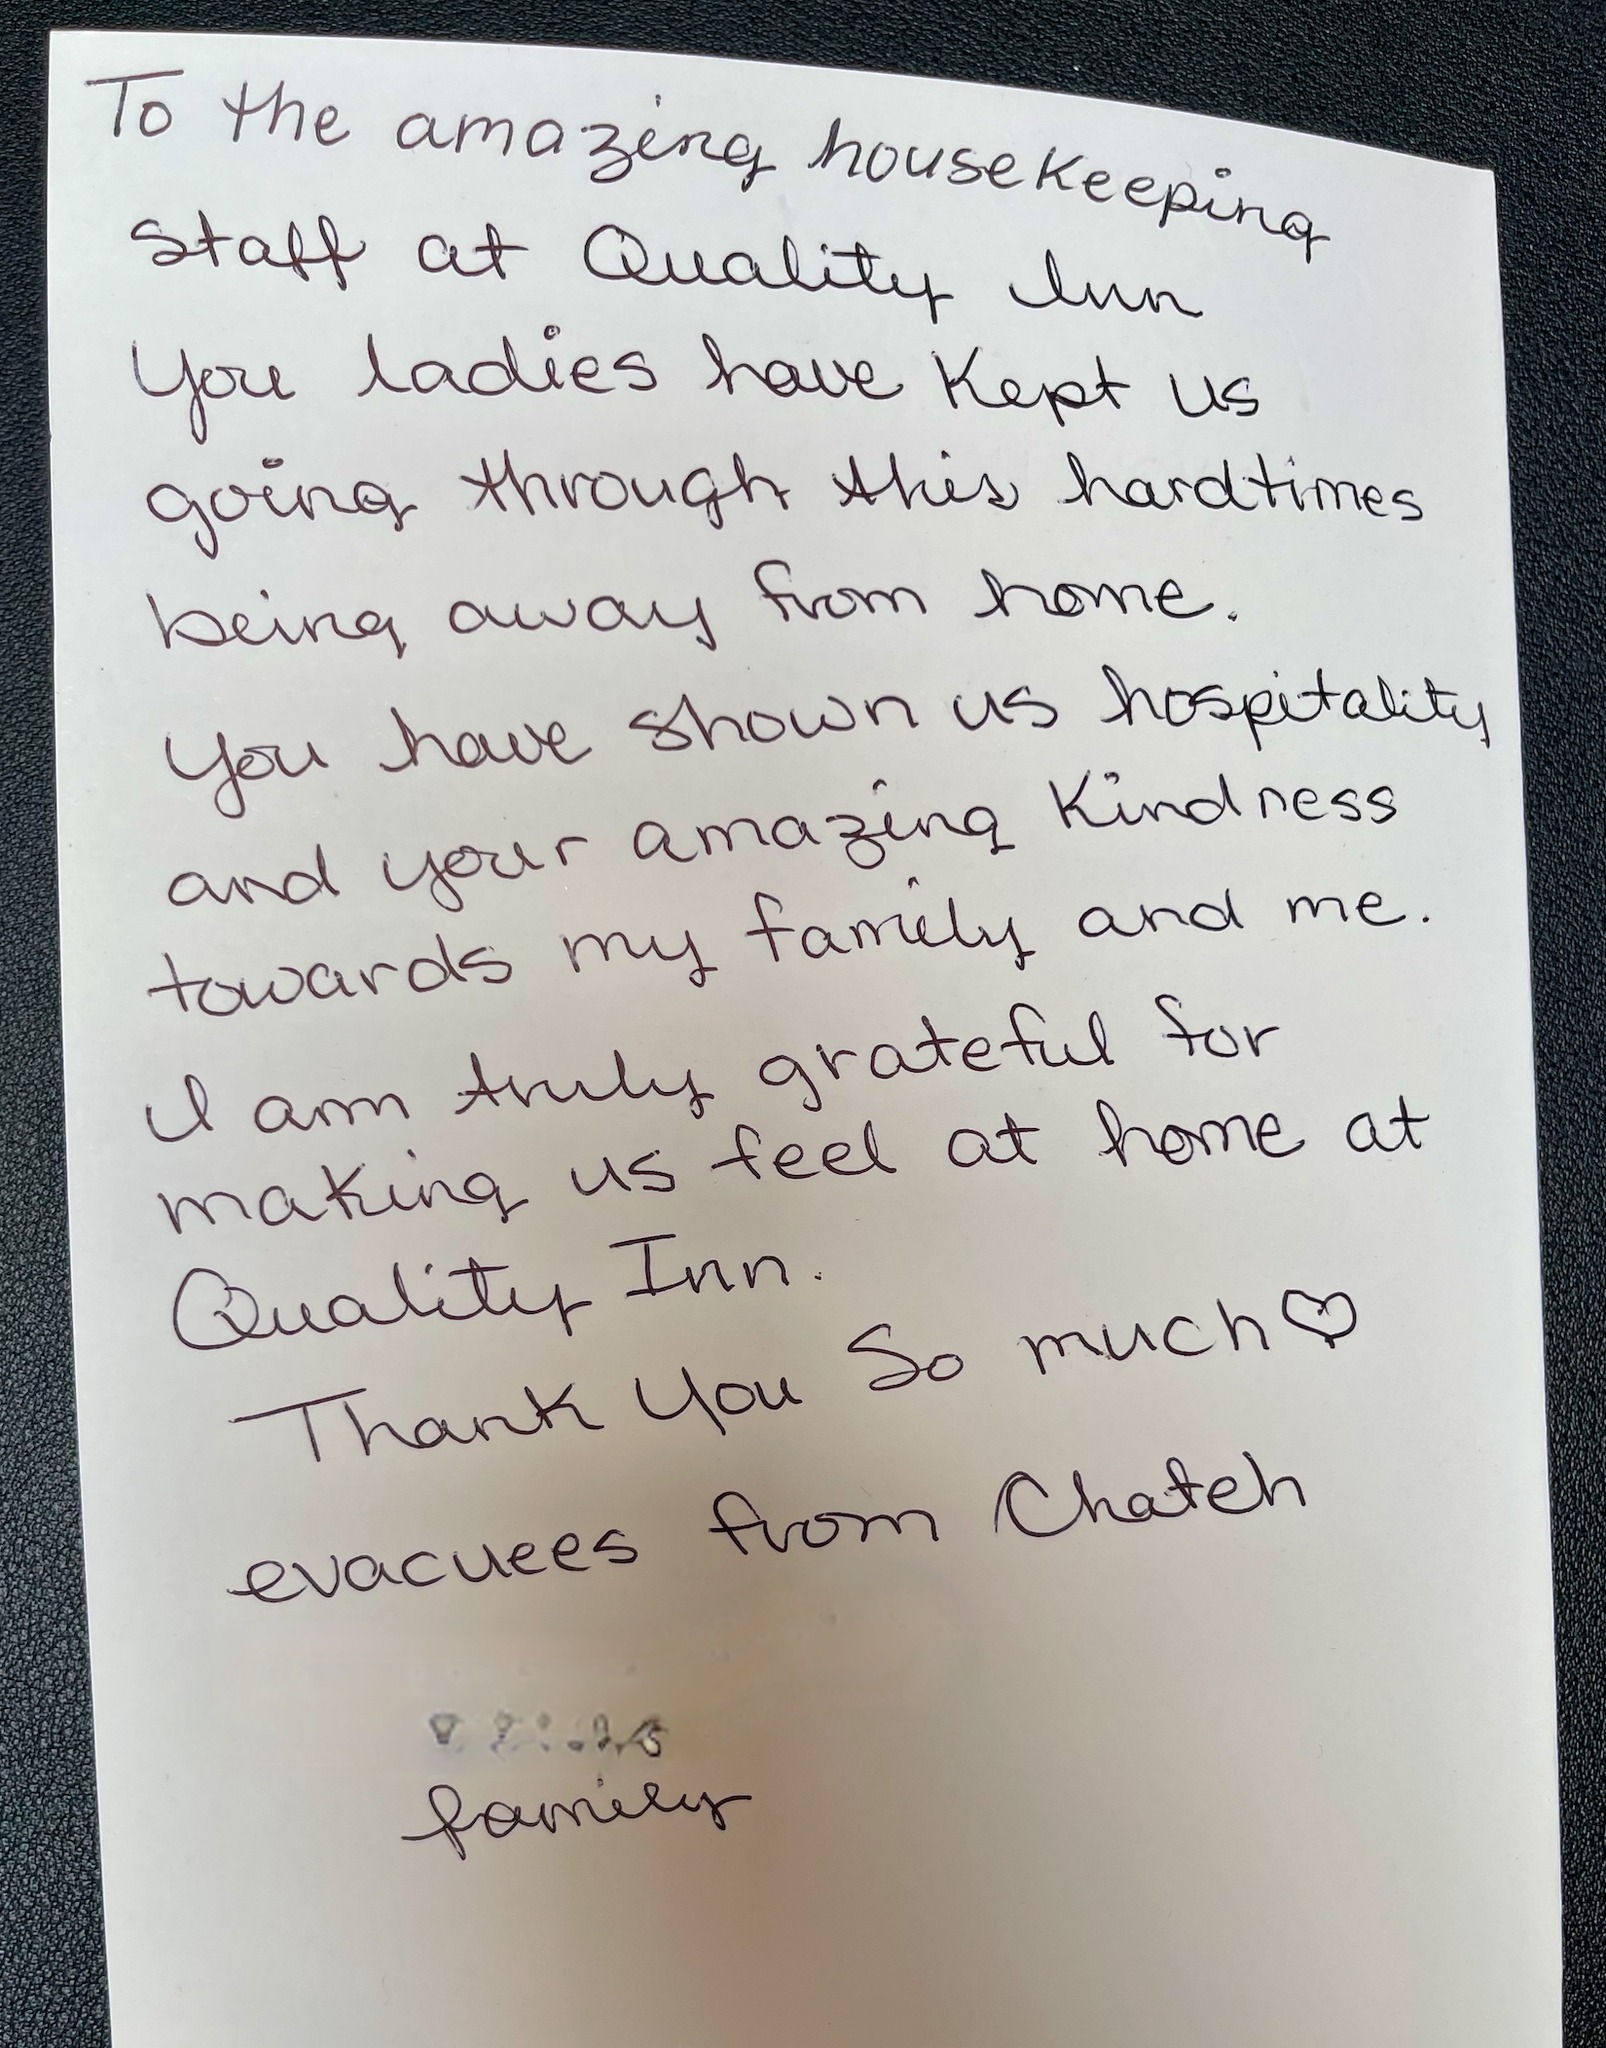 To the amazing housekeeping
staff at Quality Inn
You ladies have kept us
going through this hardtimes
being away from home.
You have shown us hospitality
and your amazing kindness
towards my family and me.
I am truly grateful for
making us feel at home at
Quality Inn.
Thank You So much♡
evacuees from Chateh
family